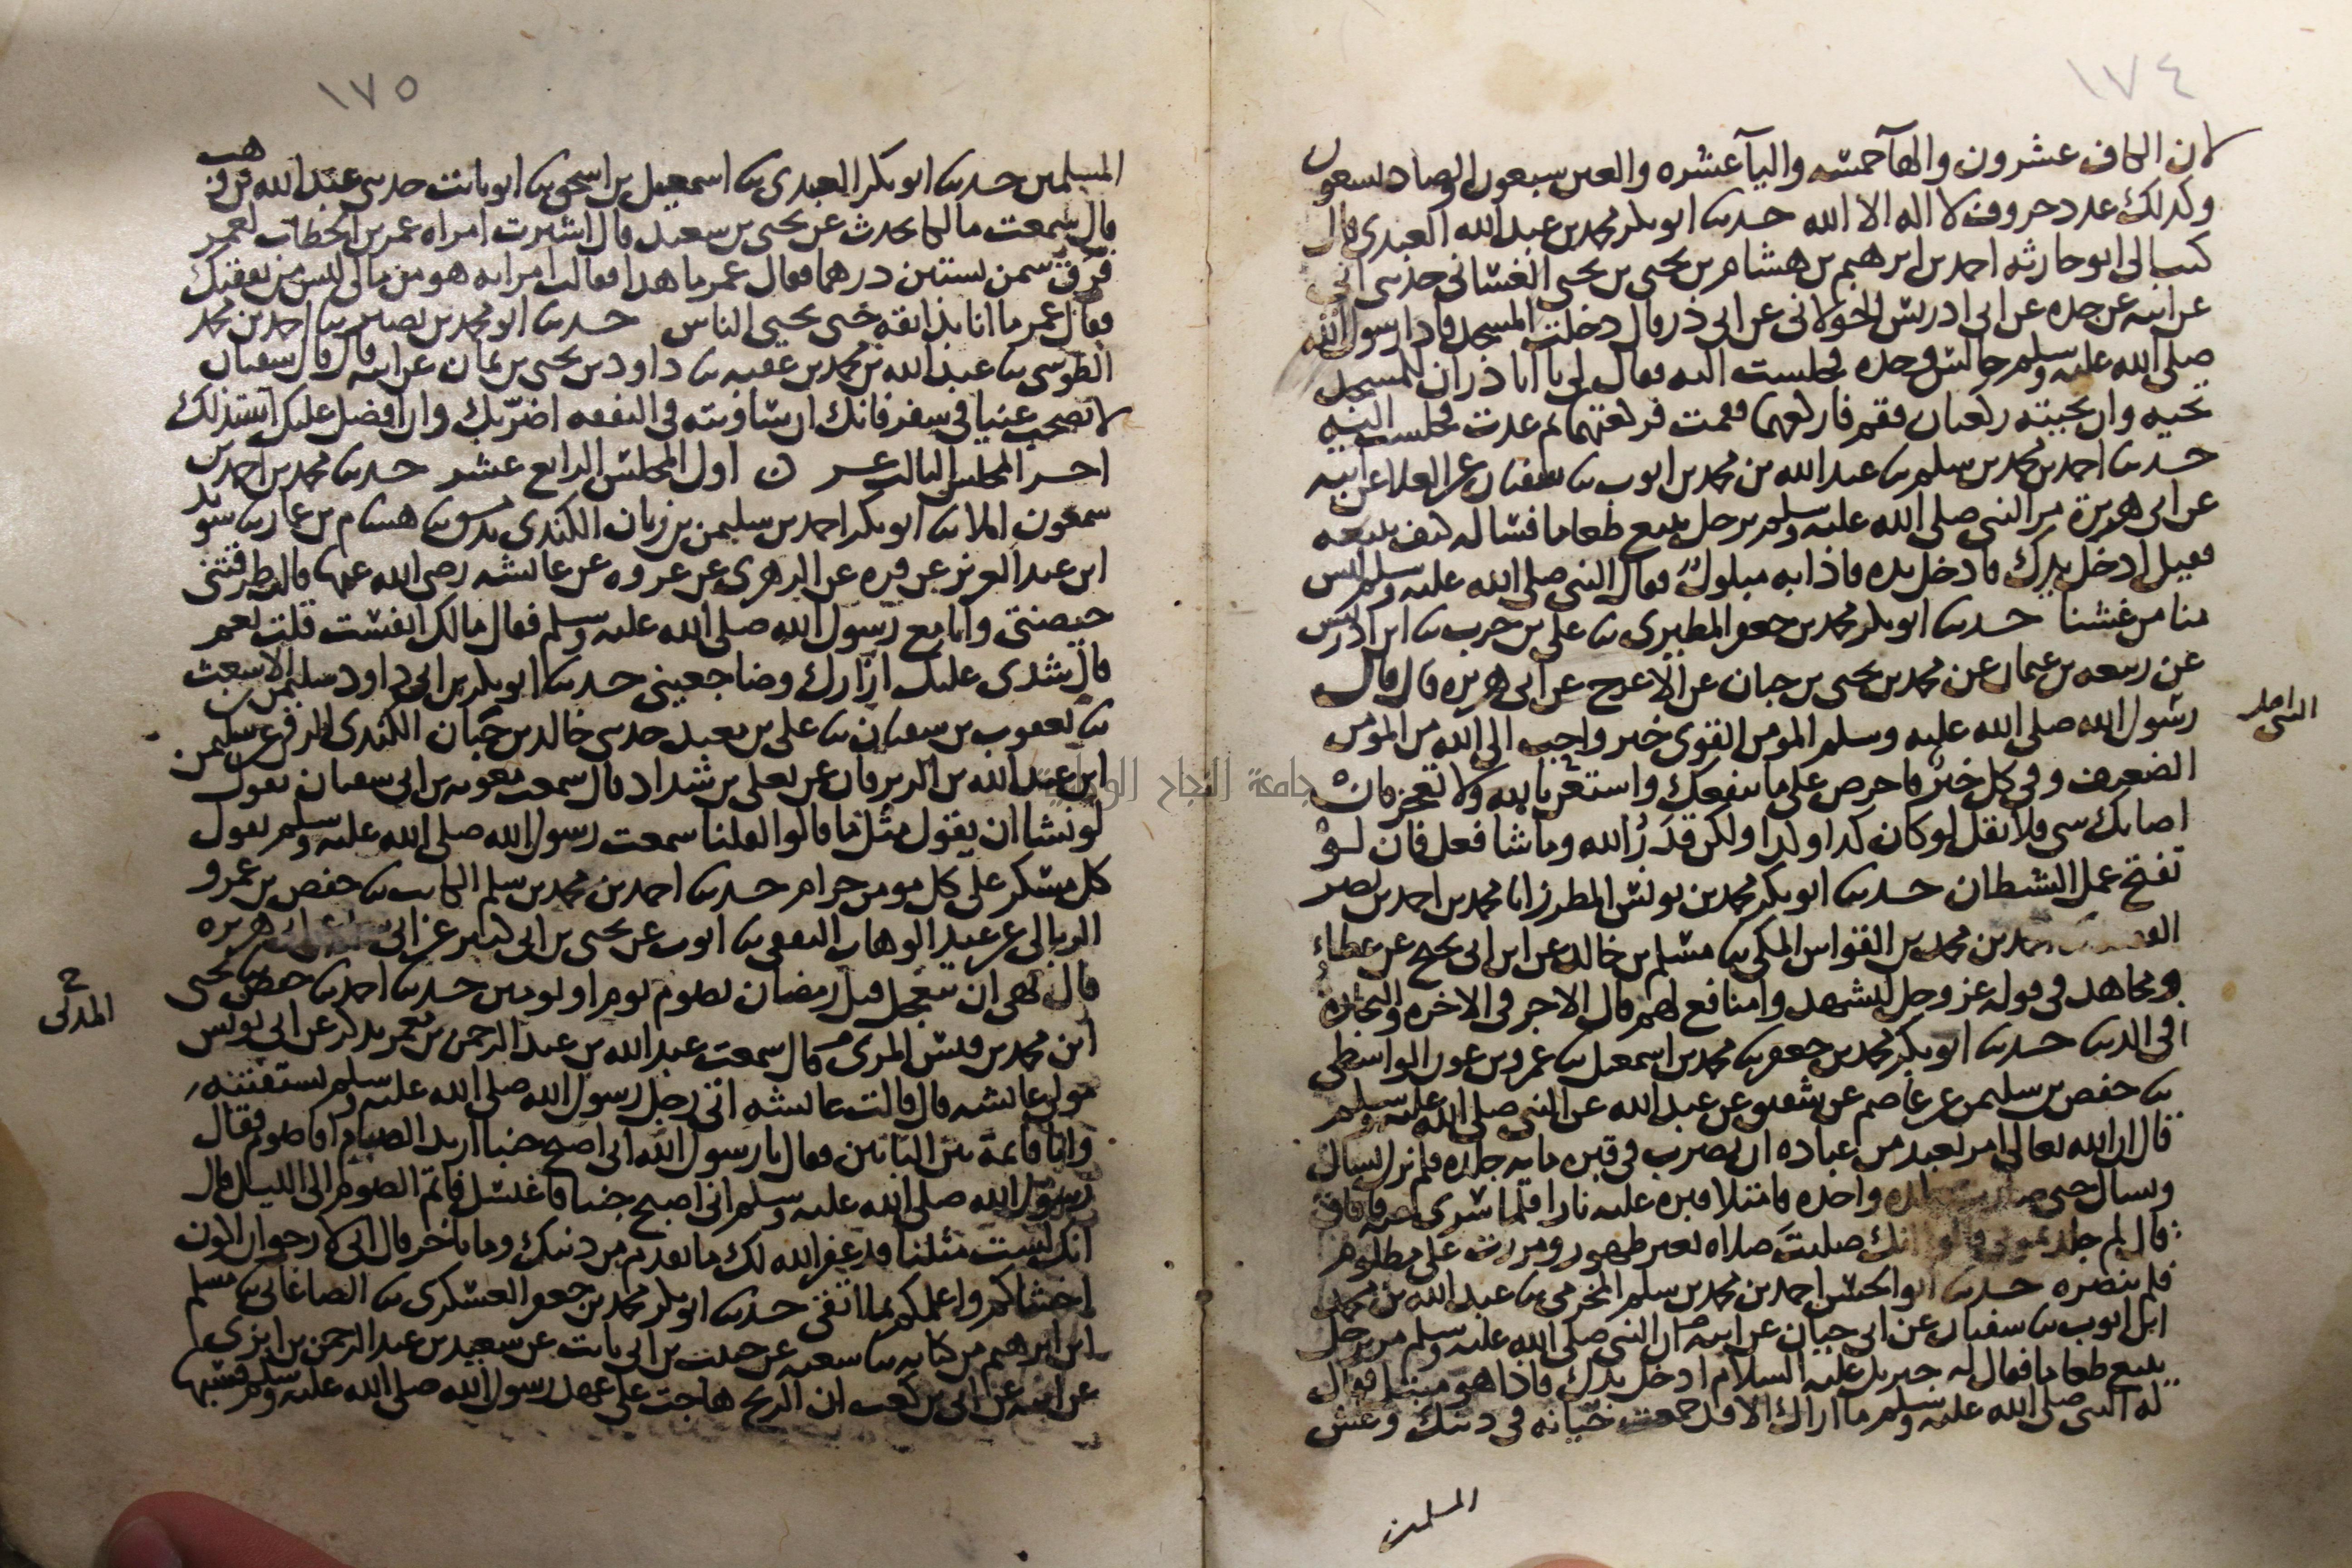 ١٧٤
لان الكاف عشرون والهآ خمسه واليآ عشره والعين سبعون والصاد تسعون
وكذلك عدد حروف لا اله الا الله حدثنا ابو بكر محمد بن عبد الله العبدي قال
كتب الي ابو حارثه احمد بن ابرهيم بن هشام بن يحيى بن يحيى الغساني حدثني ابي
عن ابيه عن جده عن ابي ادريس الخولاني عن ابي ذر قال دخلت المسجد فاذا رسول الله
صلى الله عليه وسلم جالس وحده فجلست اليه فقال لي يا ابا ذر ان للمسجد
تحيه وان تحيته ركعتان فقم فاركعهما فقمت فركعتهما ثم عدت فجلست اليه
حدثنا احمد بن محمد بن سليم ثنا عبد الله بن محمد بن ايوب ثنا سفيان عن العلا عن ابيه
عن ابي هريرة مر النبي صلى الله عليه وسلم برجل يبيع طعاما فساله كيف يبيعه
فقيل ادخل يدك فادخل يده فاذا به مبلول فقال النبي صلى الله عليه وسلم ليس
منا من غشنا حدثنا ابو بكر محمد بن جعفر المطيري ثنا علي بن حرب ثنا ابن ادريس
عن ربيعه بن عثمان عن محمد بن يحيى بن حبان عن الاعرج عن ابي هريره قال قال
رسول الله صلى الله عليه وسلم المومن القوي خير واحب الى الله من المومن
الضعيف وفي كل خير فاحرص على ما ينفعك واستعن بالله ولا تعجز فان
اصابك شي فلا تقل لو كان كذا وكذا ولكن قدر الله وما شا فعل فان لو
تفتح عمل الشيطان حدثنا ابو بكر محمد بن يونس المطرز انا محمد بن احمد بن نصر
احمد بن محمد بن القواس المكي ثنا مسلم بن خالد عن ابن ابي نجيح عن عطاء
ومجاهد في قوله عز وجل ليشهدوا منافع لهم قال الاجر في الاخره والتجارة
في الدنيا حدثنا ابو بكر محمد بن جعفر ثنا محمد بن اسمعيل ثنا عمرو بن عون الواسطي
ثنا حفص بن سليمن عن عاصم عن شقيق عن عبد الله عن النبي صلى الله عليه وسلم
قال ان الله تعالى امر بعبد من عباده ان يضرب في قبره مايه جلده فلم يزل يسال
ويسال حتى صارت جلده واحده فامتلا قبره عليه نارا فلما سري عنه فافاق
قال لم جلدتموني قالوا انك صليت صلاه بغير طهور ومررت على مظلوم
فلم تنصره حدثنا ابو الحسن احمد بن محمد بن سلم المخرمي ثنا عبد الله بن محمد
ابن ايوب ثنا سفيان عن ابي حيان عن ابيه ان النبي صلى الله عليه وسلم مر برجل
يبيع طعاما فقال له جبريل عليه السلام ادخل يدك فاذا هو مبتل فقال
له النبي صلى الله عليه وسلم ما اراك الا قد جمعت خيانه في دينك وغش
المسلمين
١٧٥
المسلمين حدثنا ابو بكر العبدي ثنا اسمعيل بن اسحق ثنا ابو ثابت حدثني عبد الله بن وهب
قال سمعت مالكا يحدث عن يحيى بن سعيد قال اشترت امراه عمر بن الخطاب لعمر
فرق سمن بستين درهما فقال عمر ما هذا فقالت امراته هو من مالي ليس من نفقتك
فقال عمر ما انا بذايقه حتى يحيى الناس حدثنا ابو محمد بن نصير ثنا احمد بن محمد
الطوسي ثنا عبد الله بن محمد بن عقبه ثنا داود بن يحيى بن يمان عن ابيه قال قال سفيان
لا تصحب غنيا في سفر فانك ان ساويته في النفقه اضر بك وان افضل عليك استذلك
اخر المجلس الثالث عشر اول المجلس الرابع عشر حدثنا محمد بن احمد بن
سمعون املا ثنا ابو بكر احمد بن سليمن بن زبان الكندي بدمشق ثنا هشام بن عمار ثنا سويد
ابن عبد العزيز عن قره عن الزهري عن عروه عن عائشه رضي الله عنها قالت طرقتني
حيضتي وانا مع رسول الله صلى الله عليه وسلم فقال مالك انفست قلت نعم
قال شدي عليك ازارك وضاجعيني حدثنا ابو بكر بن ابي داود سليمن بن الاشعث
ثنا يعقوب بن سفيان ثنا علي بن معبد حدثني خالد بن حيان الكندي الرقي عن سليمن
ابن عبد الله بن الزبرقان عن يعلى بن شداد قال سمعت معويه بن ابي سفيان يقول
لو نشا ان يقول مثل ما قالوا لقلنا سمعت رسول الله صلى الله عليه وسلم يقول
كل مسكر على كل مومن حرام حدثنا احمد بن محمد بن سلم الكاتب ثنا حفص بن عمرو
الربالي عن عبد الوهاب الثقفي ثنا ايوب عن يحيى بن ابي كثير عن ابي سلمه عن ابي هريره
قال نهى ان يتعجل قبل رمضان بصوم يوم او يومين حدثنا احمد ثنا حفص ثنا يحيى
المدني
ابن محمد بن قيس المدني قال سمعت عبد الله بن عبد الرحمن بن معمر يذكر عن ابي يونس
مولى عائشه قال قالت عائشه اتى رجل رسول الله صلى الله عليه وسلم يستفتيه
وانا قائمة بين البابين فقال يا رسول الله اني اصبح جنبا اريد الصيام افاصوم فقال
رسول الله صلى الله عليه وسلم اني اصبح جنبا فاغتسل فاتم الصوم الى الليل قال
انك لست مثلنا قد غفر الله لك ما تقدم من ذنبك وما تاخر قال اني لارجو ان اكون
اخشاكم واعلمكم بما اتقي حدثنا ابو بكر محمد بن جعفر العسكري ثنا الصاغاني ثنا مسلم
ابن ابرهيم من كتابه ثنا شعبه عن حبيب بن ابي ثابت عن سعيد بن عبد الرحمن بن ابزى
عن ابيه عن ابي بن كعب ان الريح هاجت على عهد رسول الله صلى الله عليه وسلم فسبها